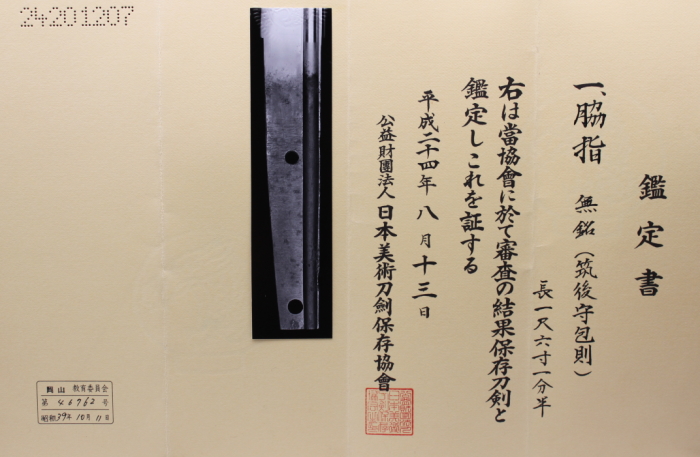 鑑定書
一、脇指 無銘(筑後守包則)
長一尺六寸一分半
右は當協會に於て審査の結果保存刀剣と
鑑定しこれを証する
平成二十四年八月十三日
公益財團法人 日本美術刀劍保存協會
24201207
岡山 教育委員会
第 46762 号
昭和39年10月11日